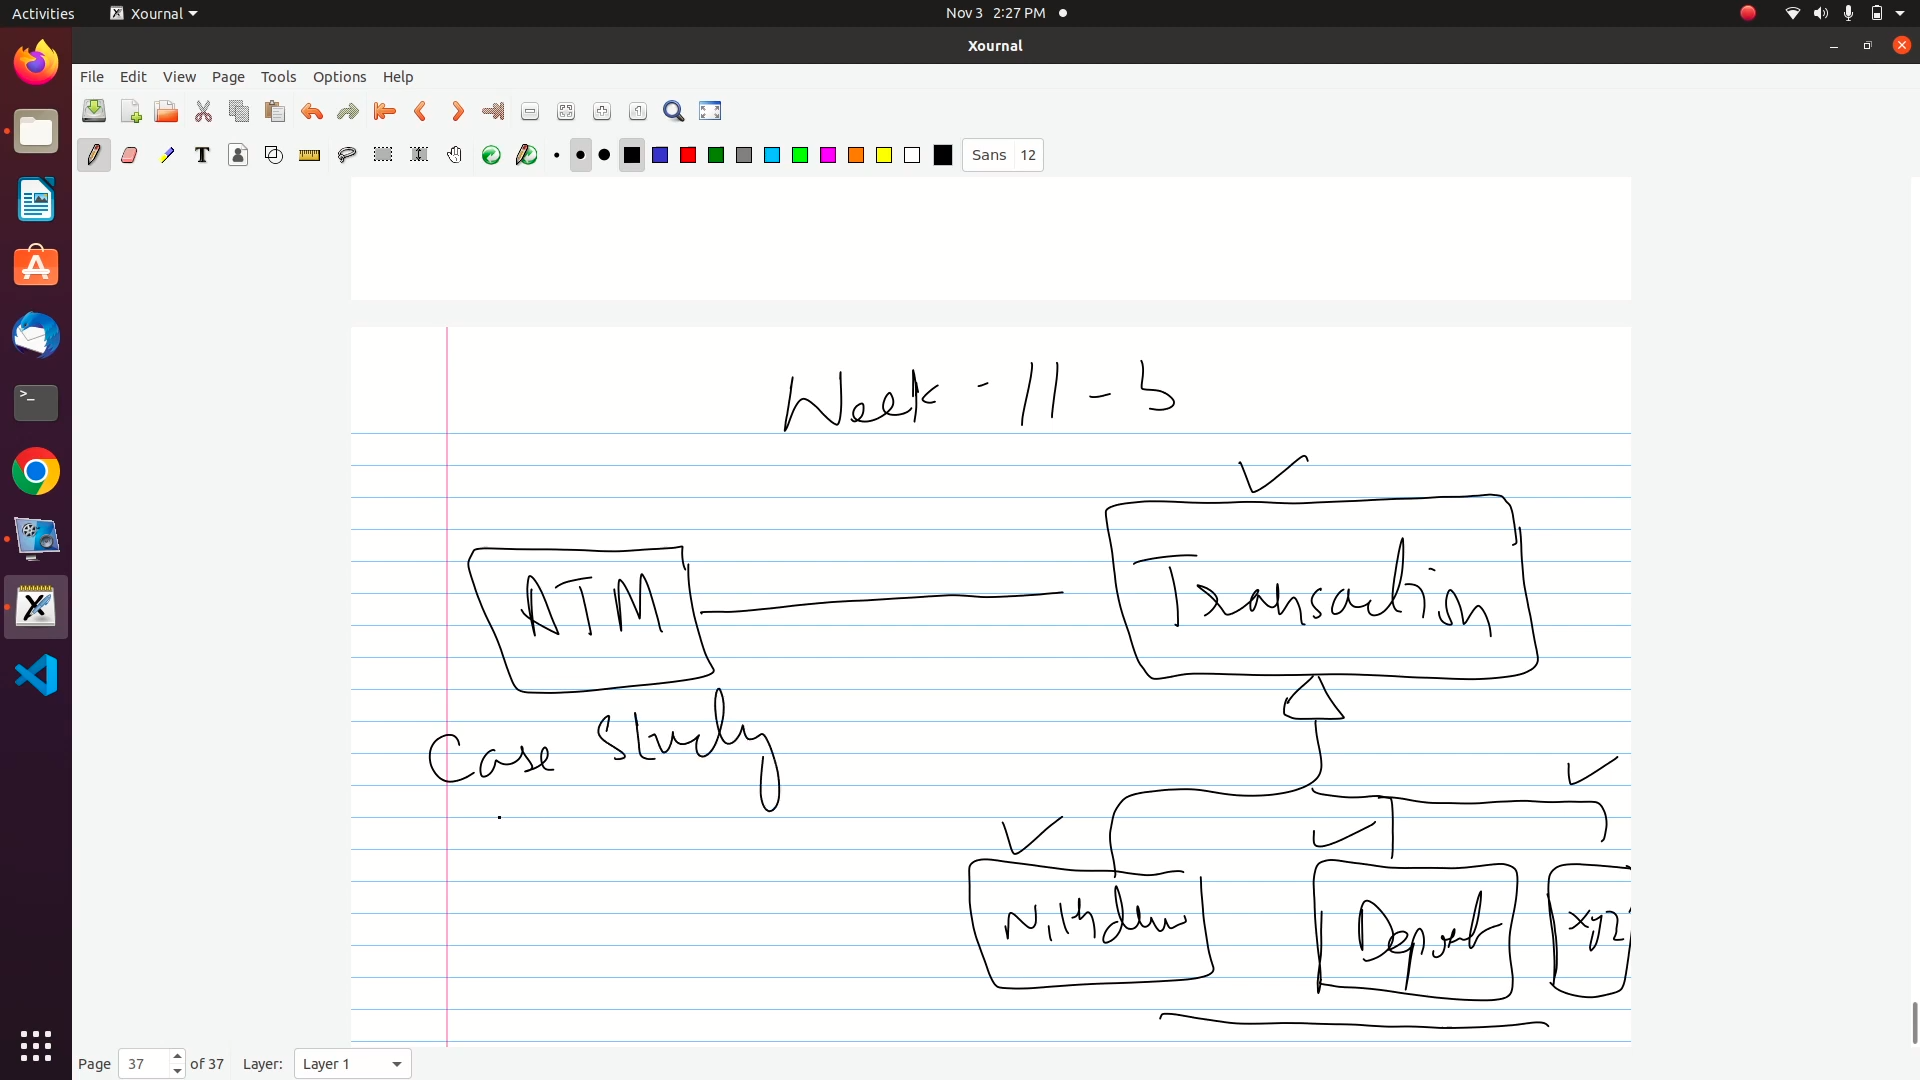 Activities Xournal Nov 3 2:27 PM
Xournal
File Edit View Page Tools Options Help
Sans 12
Week - 11 - 3
ATM Transaction
Case Study
Deposit xyz
Page 37 of 37 Layer: Layer 1